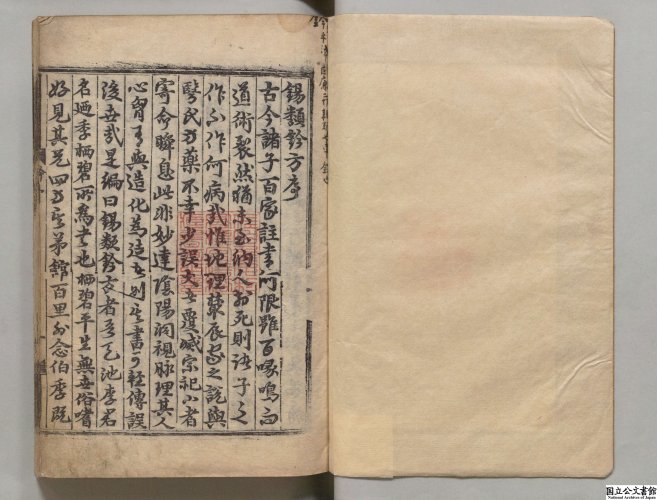 錫類鈐方序
古今諸子百家註書何限雖百喙鳴而
道術裂然猶未至納人於死則諸子之
作不作何病哉惟地理葬辰家之說與
醫民方藥不幸少誤大者覆滅宗祀小者
寄命瞬息此非妙達陰陽洞視脉理其人
心胷與造化為徒者則其書可輕傳誤
後世哉是編曰錫類鈐方者
名廼季栖碧所為書也栖碧平生無世俗嗜
好見其兄四方其弟舘百里外念伯季既
国立公文書館
National Archives of Japan